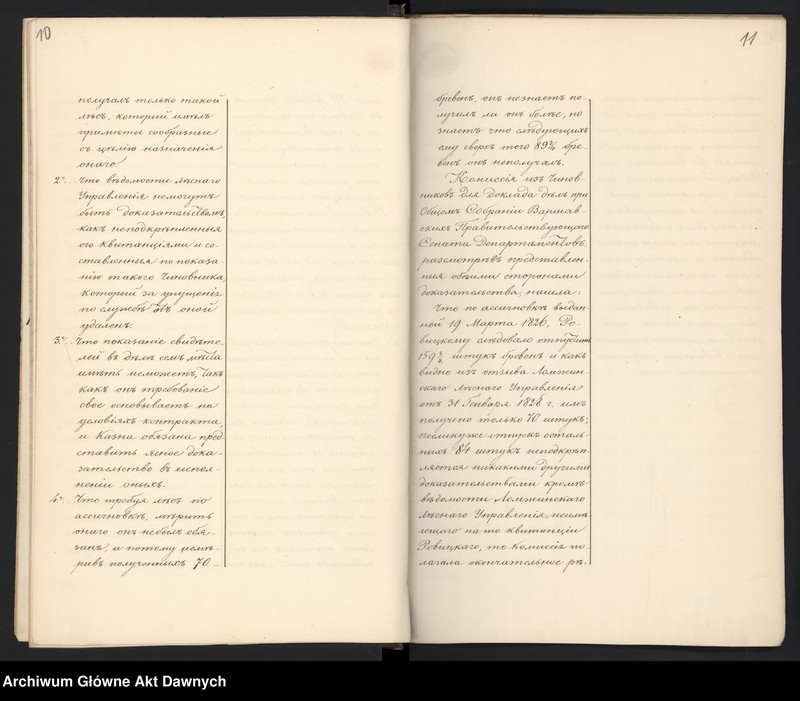 10
получалъ только такой
лѣсъ, который имѣлъ
примѣты сообразные
съ цѣлію назначенія
онаго.
2е. Что вѣдомости лѣснаго
Управленія немогутъ
быть доказательствомъ,
какъ неподкрѣпленныя
его квитанціями и со-
ставленныя по показа-
нію такого Чиновника,
который за упущеніе
по службѣ отъ оной
удаленъ.
3е. Что показаніе свидѣте-
лей въ дѣлѣ семъ мѣста
имѣть неможетъ, такъ
какъ онъ требованіе
свое основываетъ на
условіяхъ контракта,
и Казна обязана пред-
ставить ясное дока-
зательство въ испол-
неніи оныхъ.
4е. Что требуя лѣсъ по
ассигновкѣ, мѣрить
онаго онъ небылъ обя-
занъ, и потому немѣ-
ривъ полученныхъ 70 –
11
бревенъ, онъ незнаетъ по-
лучилъ ли онъ болѣе, но
знаетъ что слѣдующихъ
ему сверхъ того 89¾ бре-
венъ онъ неполучалъ.
Комиссія изъ Чинов-
никовъ для доклада дѣлъ при
Общемъ Собраніи Варшав-
скихъ Правительствующаго
Сената Департаментовъ,
разсмотрѣвъ представлен-
ныя обѣими сторонами
доказательства, нашла:
Что по ассигновкѣ выдан-
ной 19 Марта 1826, Ро-
вицкому слѣдовало отпустить
159¾ штукъ бревенъ и какъ
видно изъ отзыва Ломжин-
скаго Лѣснаго Управленія
отъ 31 Генваря 1828 г. имъ
получено только 70 штукъ;
поелику же отпускъ осталь-
ныхъ 84 штукъ неподкрѣп-
ляется никакими другими
доказательствами кромѣ
вѣдомости Ломжинскаго
Лѣснаго Управленія, неимѣ-
ющаго на то квитанціи
Ровицкаго, то Комиссія по-
лагала окончательное рѣ-
Archiwum Główne Akt Dawnych